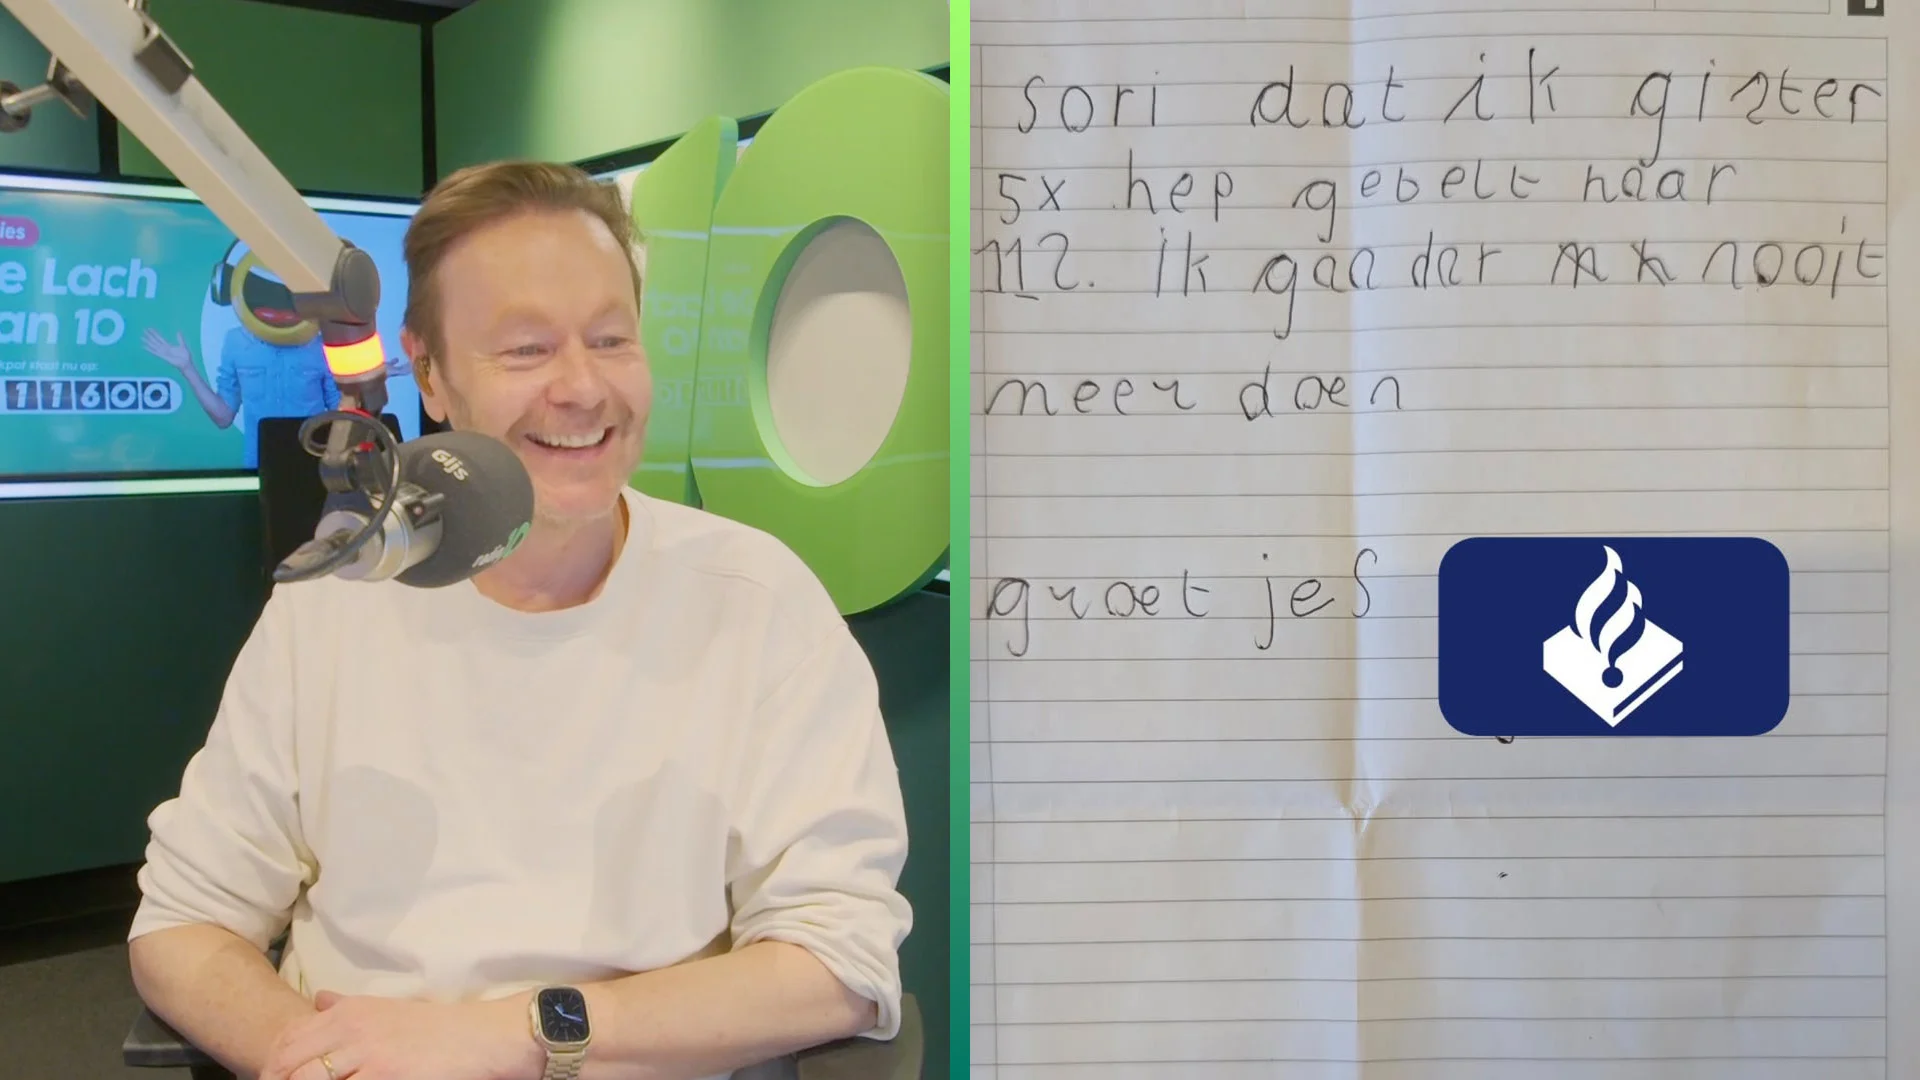 ies
e Lach
an 10
kpot staat nu op:
11600
Gijs
radio 10
10
sori dat ik gister
5x hep gebelt naar
112. ik gaa dar nooit
meer doen
groet jes